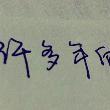 许多年